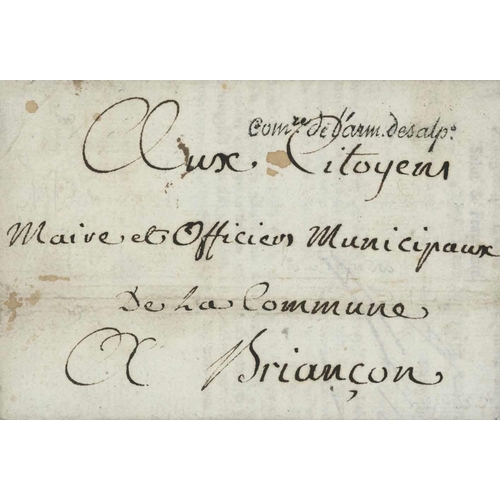 Com.re de D'arm. des alp.s
Aux Citoyens
Maire et Officiers Municipaux
De La Commune
A Briançon